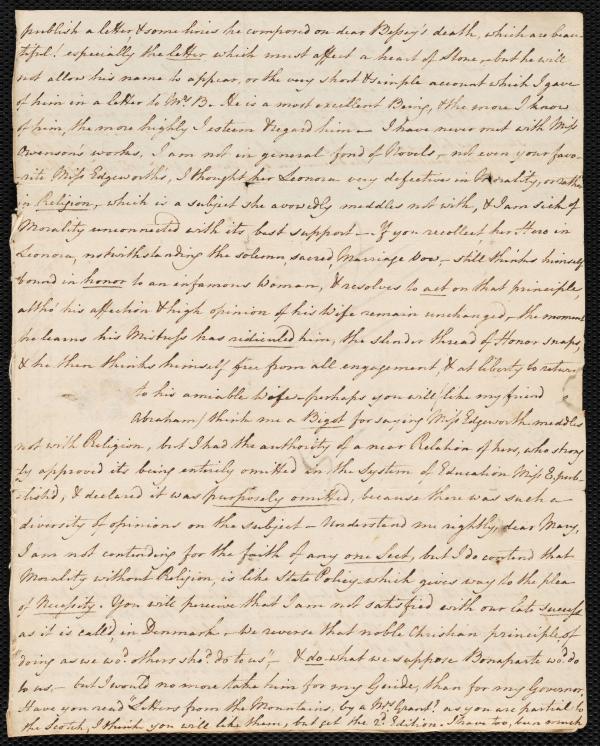 publish a letter & some lines he composed on dear Bessey's death, which are beau-
tiful! especially the letter which must affect a heart of Stone, - but he will
not allow his name to appear, or the very short & simple account which I gave
of him in a letter to Mrs B. He is a most excellent Being, & the more I know
of him, the more highly I esteem & regard him - I have never met with Miss
Owenson's works, I am not in general fond of Novels, - not even your favo-
-rite Miss Edgeworth's, I thought her Leonora very defective in Morality, or rather
in Religion, which is a subject she avowedly meddles not with, & I am sick of
Morality unconnected with its best support - . If you recollect, her Hero in
Leonora, notwithstanding the solemn, sacred, Marriage Vow, - still thinks himself
bound in honor to an infamous Woman, & resolves to act on that principle,
altho' his affection & high opinion of his Wife remain unchanged, - the moment
he learns his Mistress has ridiculed him, the slender thread of Honor snaps,
& he then thinks himself free from all engagement, & at liberty to return
to his amiable Wife - perhaps you will (like my friend
Abraham) think me a Bigot for saying Miss Edgeworth meddles
not with Religion, but I had the authority of a near Relation of hers, who strong-
ly approved its being entirely omitted in the System of Education Miss E. pub-
-lish'd, & declared it was purposely omitted, because there was such a
diversity of opinions on the subject - Understand me rightly, dear Mary,
I am not contending for the faith of any one Sect, but I do contend that
Morality without Religion, is like State Policy, which gives way to the plea
of Necessity. You will perceive that I am not satisfied with our late success
as it is call'd, in Denmark - We reverse that noble Christian principle, of
"doing as we wod. others shod. do to us", - & do what we suppose Bonaparte wod. do
to us, - but I would no more take him for my Guide, than for my Governor,
Have you read "Letters from the Mountains, by a Mrs Grant? as you are partial to
the Scotch, I think you will like them, but get the 2d. Edition. I have too, been much